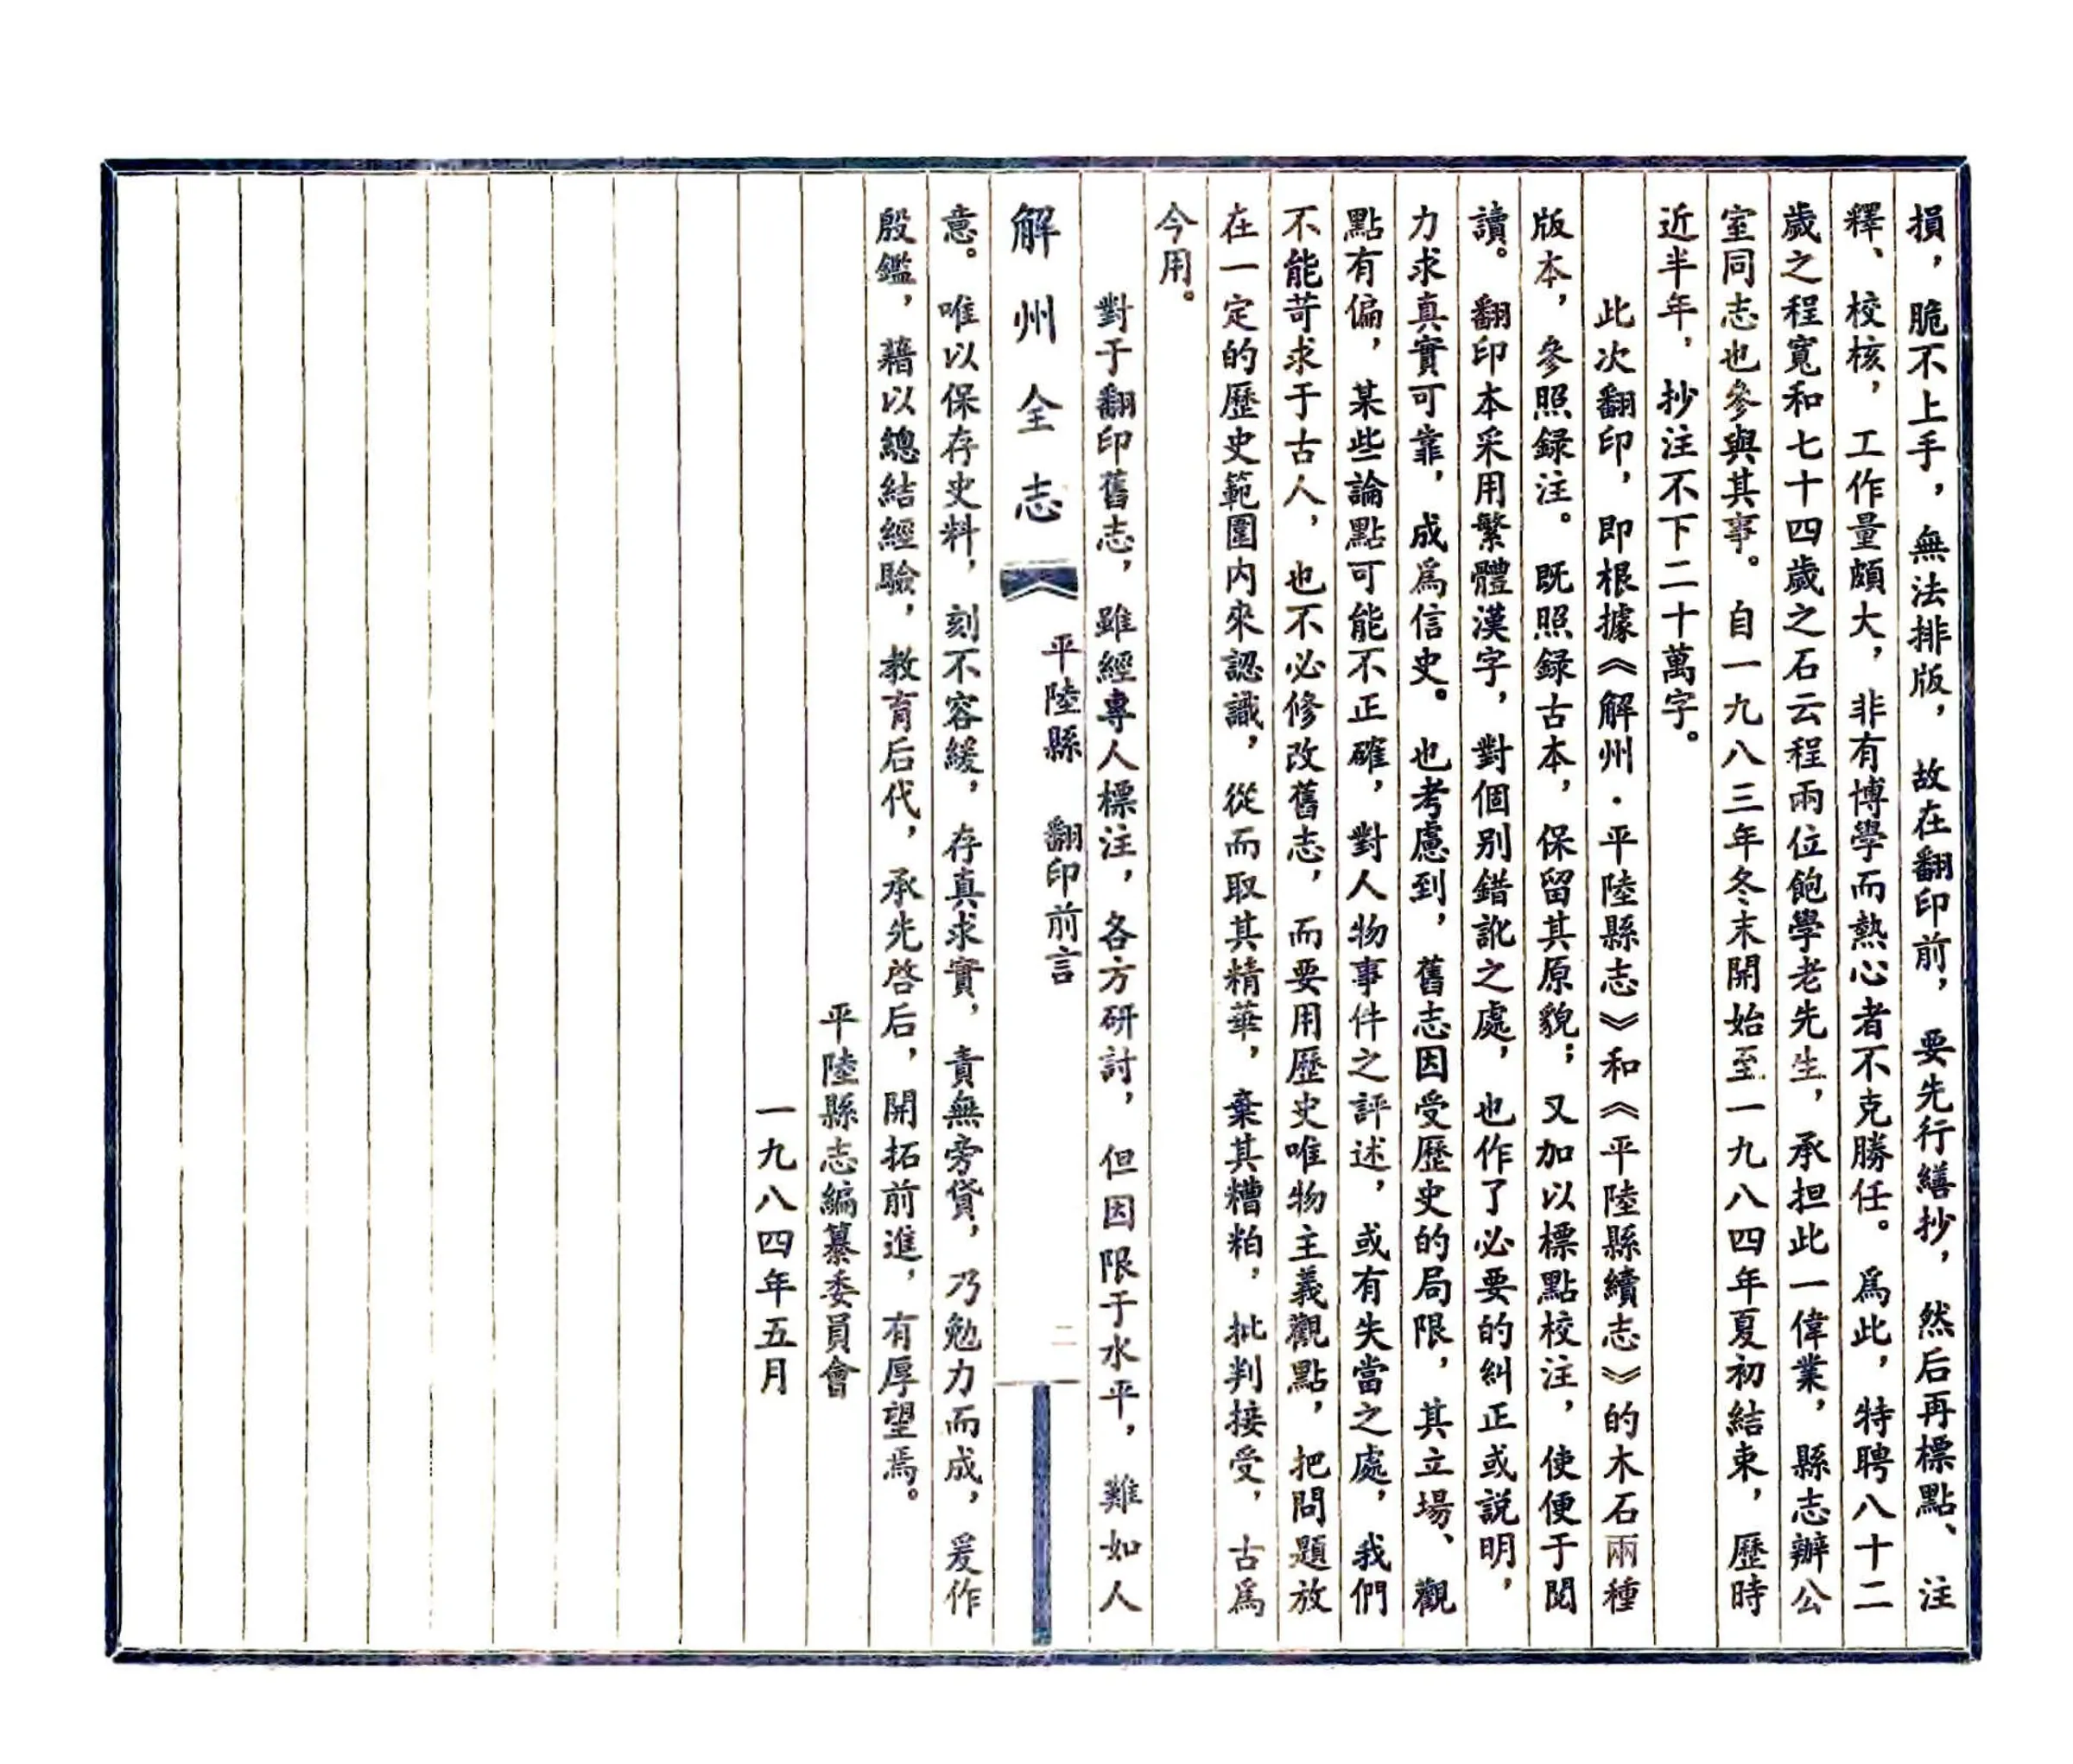 損，脆不上手，無法排版，故在翻印前，要先行繕抄，然后再標點、注
釋、校核，工作量頗大，非有博學而熱心者不克勝任。爲此，特聘八十二
歲之程寬和七十四歲之石云程兩位飽學老先生，承担此一偉業，縣志辦公
室同志也參與其事。自一九八三年冬末開始至一九八四年夏初結束，歷時
近半年，抄注不下二十萬字。
此次翻印，即根據《解州·平陸縣志》和《平陸縣續志》的木石兩種
版本，參照録注。既照録古本，保留其原貌；又加以標點校注，使便于閲
讀。翻印本采用繁體漢字，對個别錯訛之處，也作了必要的糾正或説明，
力求真實可靠，成爲信史。也考慮到，舊志因受歷史的局限，其立場、觀
點有偏，某些論點可能不正確，對人物事件之評述，或有失當之處，我們
不能苛求于古人，也不必修改舊志，而要用歷史唯物主義觀點，把問題放
在一定的歷史範圍内來認識，從而取其精華，棄其糟粕，批判接受，古爲
今用。
對于翻印舊志，雖經專人標注，各方研討，但因限于水平，難如人
解州全志
平陸縣 翻印前言
二
意。唯以保存史料，刻不容緩，存真求實，責無旁貸，乃勉力而成，爰作
殷鑑，藉以總結經驗，教育后代，承先啓后，開拓前進，有厚望焉。
平陸縣志編纂委員會
一九八四年五月